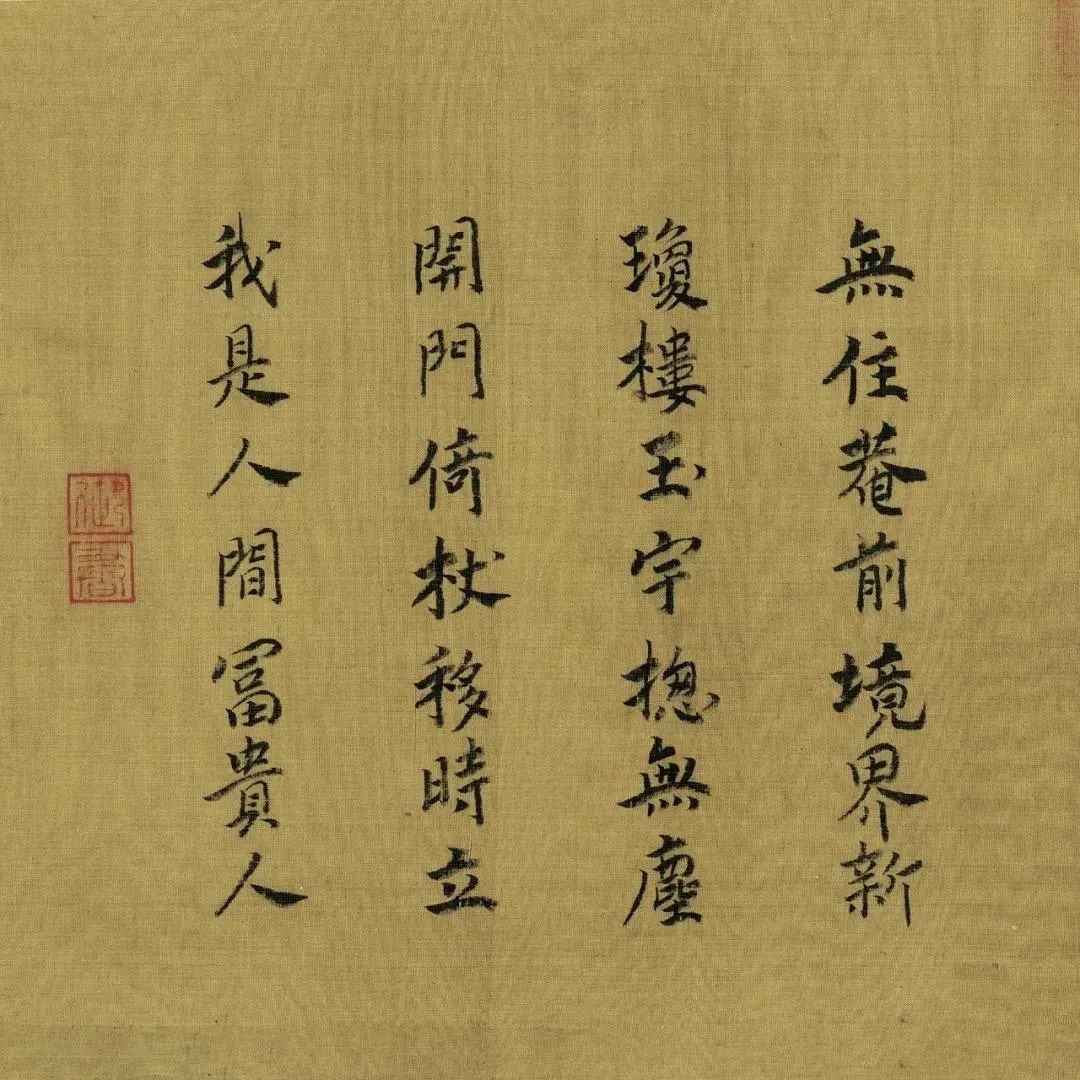 無住菴前境界新
瓊樓玉宇揔無塵
開門倚杖移時立
我是人間冨貴人
御書